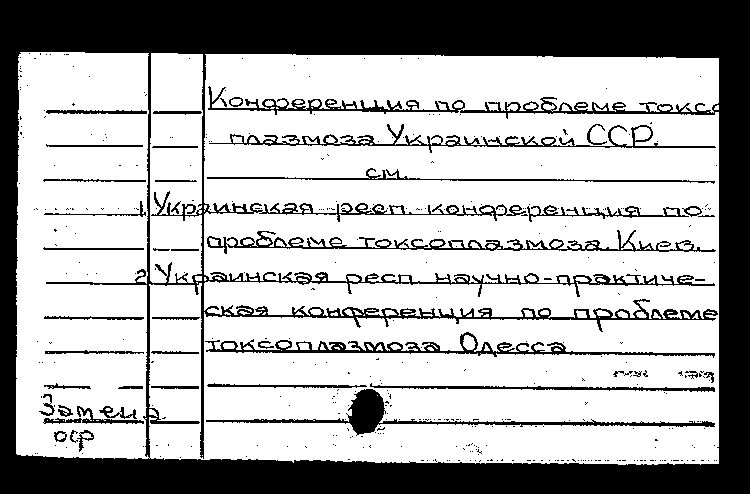 Конференция по проблеме токсо
плазмоза Украинской ССР.
см.
1. Украинская респ. конференция по
проблеме токсоплазмоза. Киев.
2. Украинская респ. научно-практиче-
ская конференция по проблеме
токсоплазмоза Одесса
Замена